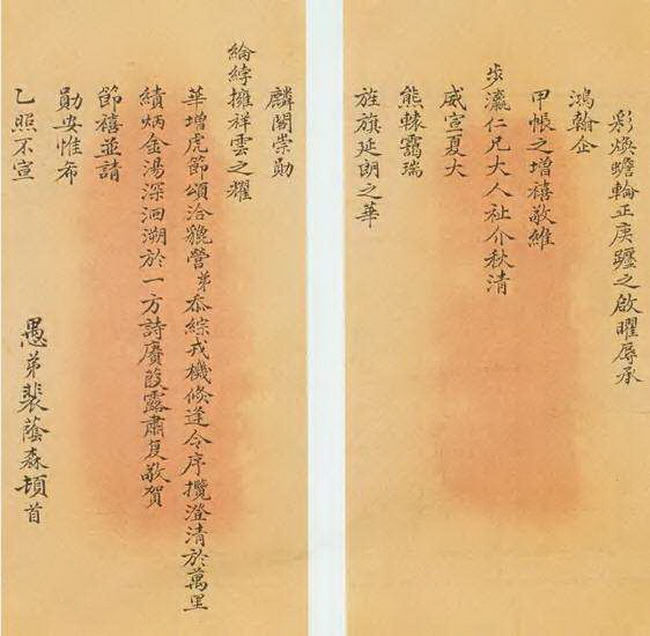 彩煥蟾輪正庚躔之啟曜辱承
鴻翰企
甲帳之增禧敬維
步瀛仁兄大人祉介秋清
威宣夏大
熊轅靄瑞
旌旗延朗之華
麟閣崇勛
綸綍擁祥雲之耀
華增虎節頌洽貔營弟忝綜戎機倏逢令序攬澄清於萬里
績炳金湯深洄溯於一方詩賡葭露肅复敬賀
節禧並請
勛安惟希
乙照不宣
愚弟裴蔭森頓首